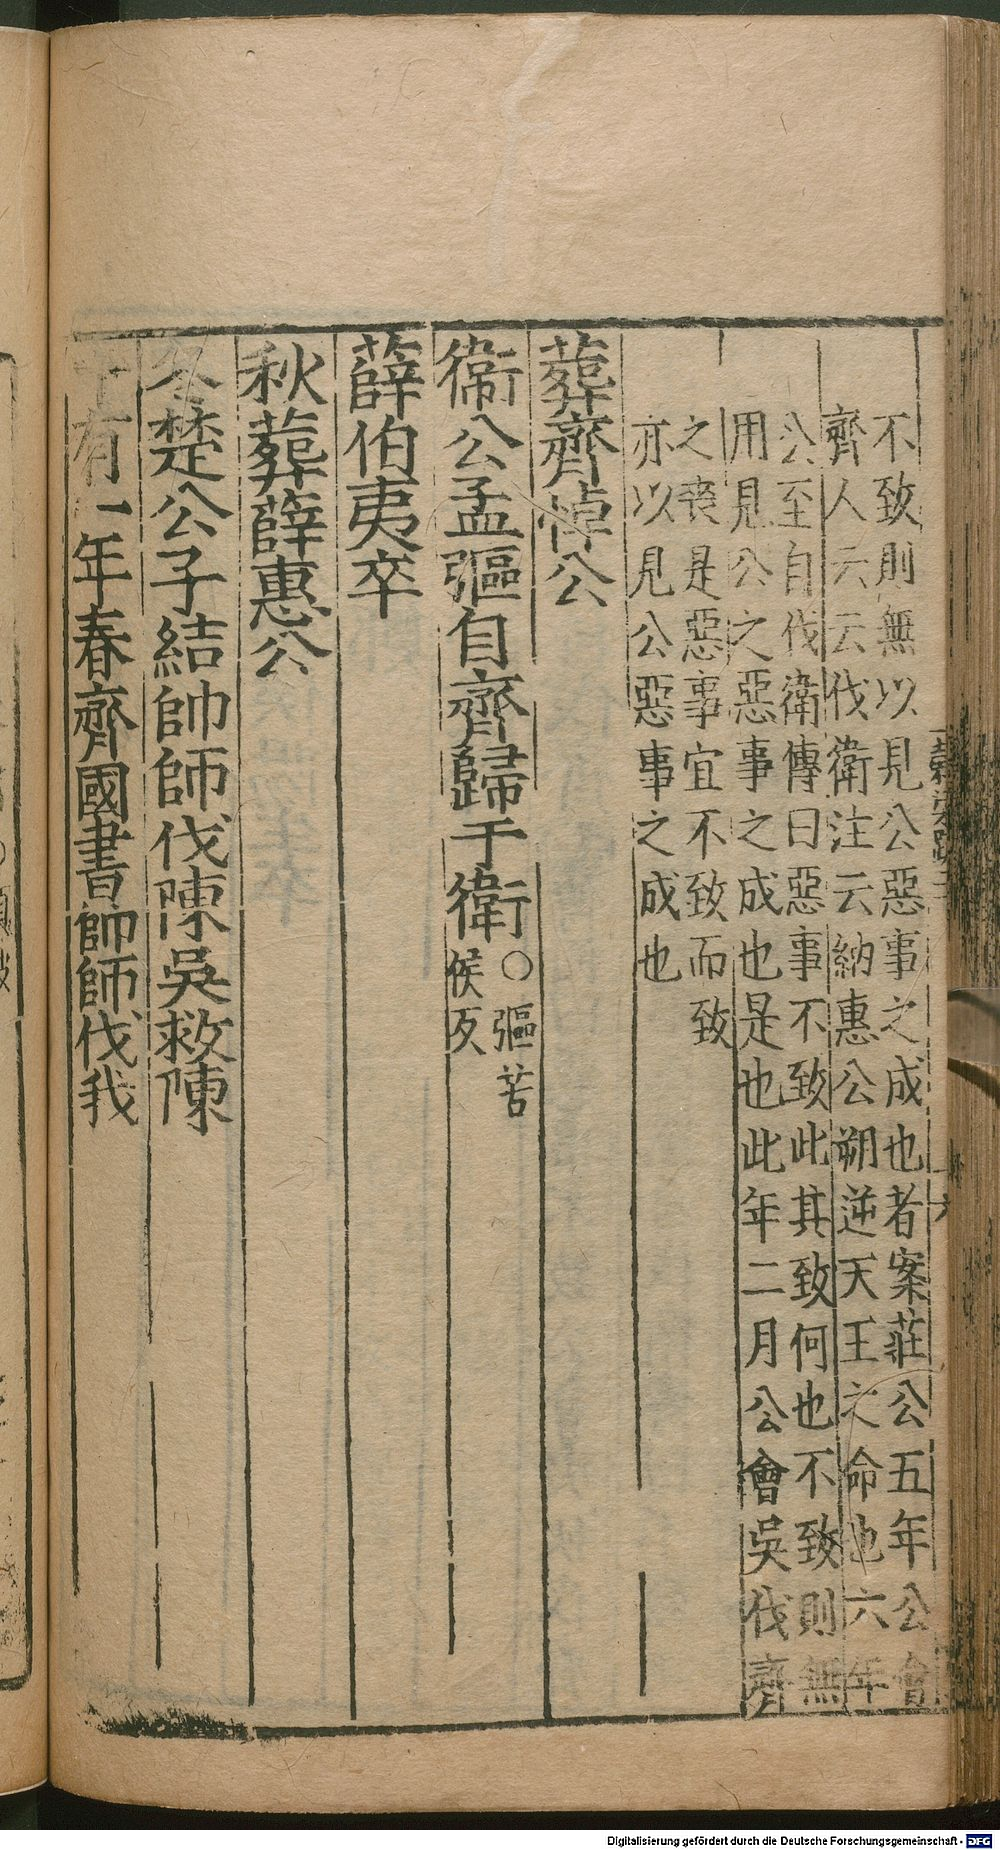 不致則無以見公惡事之成也者案莊公五年公會
齊人云云伐衛注云納惠公朔逆天王之命也六年
公至自伐衛傳曰惡事不致此其致何也不致則無
用見公之惡事之成也是也此年二月公會吳伐齊
之喪是惡事宜不致而致
亦以見公惡事之成也
葬齊悼公
衞公孟彄自齊歸于衛
○彄苦
候反
薛伯夷卒
秋葬薛惠公
冬楚公子結帥師伐陳吳救陳
十有一年春齊國書帥師伐我
Digitalisierung gefördert durch die Deutsche Forschungsgemeinschaft - DFG